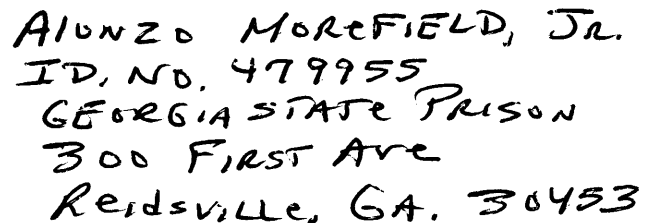 Alonzo MOREFIELD, JR.
ID. NO. 479955
GEORGIA STATE PRISON
300 FIRST Ave
Reidsville, GA. 30453